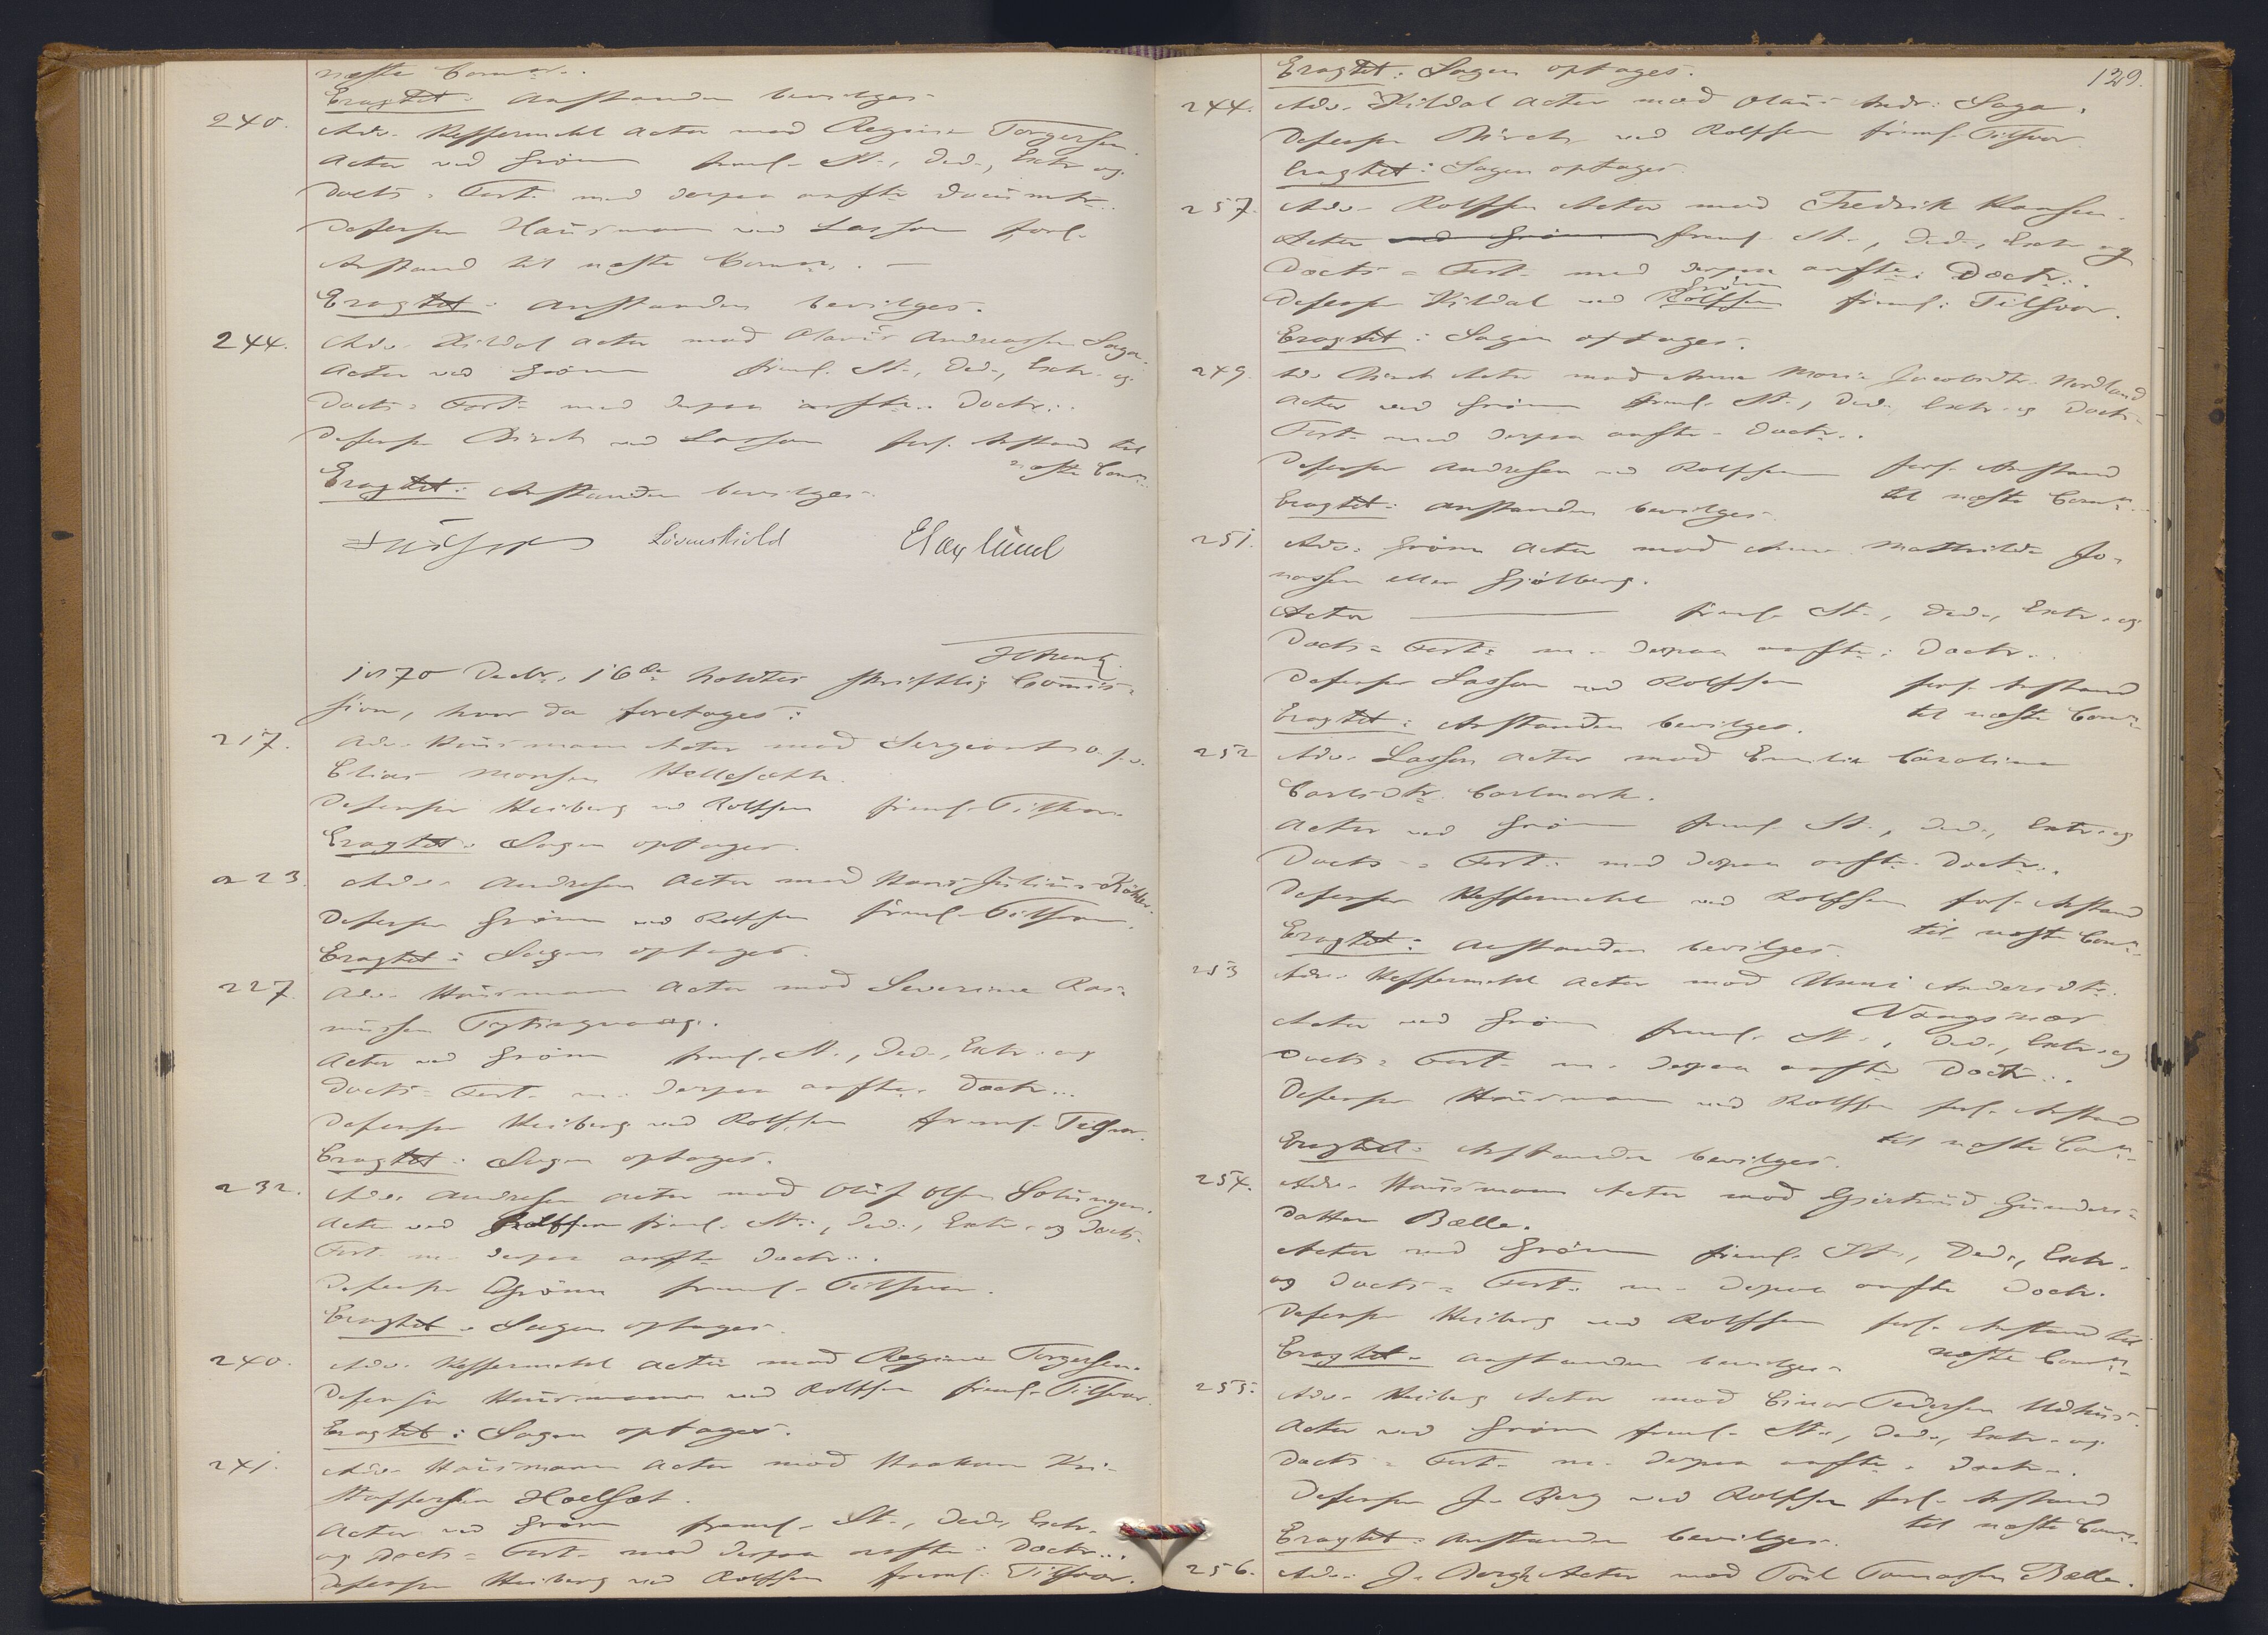 næste Comon..
Eragtet: Anstanden bevilges
240. Adv. Heffermehl Actor mod Regine Torgersen.
Actor ved Grönn freml. St., Ded., Extr. og
Docts = Fort. med derpaa anfte. Documtr..
Defensor Hausmann ved Lasson forl.
Anstand til næste Comon. —
Eragtet: Anstanden bevilges.
244. Adv. Kildal Actor mod Olaus Andreassen Saga.
Actor ved Grönn freml. St., Ded., Extr. og
Docts = Fort. med derpaa anfte. Doctr..
Defensor Birch ved Lasson forl. Anstand til
næste Comon..
Eragtet: Anstanden bevilges.
Lövenskiold
1870 Decbr. 16de holdtes skriftlig Commis-
sion, hvor da foretoges:
217. Adv. Hausmann Actor mod Sergeant o.f.v.
Elias Monsen Hellesæth.
Defensor Heiberg ved Rolfsen freml. Tilsvar.
Eragtet: Sagen optages.
223. Adv. Andresen Actor mod Hans Julius Köhler.
Defensor Grönn ved Rolfsen freml. Tilsvar.
Eragtet: Sagen optages.
227. Adv. Hausmann Actor mod Severine Ras-
mussen Tytingvaag.
Actor ved Grönn freml. St., Ded., Extr. og
Docts = Fort. m. derpaa anfte. Doctr...
Defensor Heiberg ved Rolfsen freml. Tilsvar.
Eragtet: Sagen optages.
232. Adv. Andresen Actor mod Oluf Olsen Solungen.
Actor ved Rolfsen freml. St., Ded., Extr. og Docts-
Fort. m. derpaa anfte Doctr..
Defensor Grönn freml. Tilsvar.
Eragtet: Sagen optages.
240. Adv. Heffermehl Actor mod Regine Torgersen.
Defensor Hausmann ved Rolfsen freml. Tilsvar.
Eragtet: Sagen optages.
241. Adv. Hausmann Actor mod Haakon Kri-
stoffersen Hoelsæt.
Actor ved Grönn freml. St., Ded., Extr.
og Docts = Fort. med derpaa anfte. Doctr...
Defensor Heiberg ved Rolfsen freml. Tilsvar.
129.
Eragtet: Sagen optages.
244. Adv. Kildal Actor mod Olaus Andr. Saga.
Defensor Birch ved Rolfsen freml. Tilsvar
Eragtet: Sagen optages.
257. Adv. Rolfsen Actor mod Fredrik Hansen.
Actor ved Grönn freml. St., Ded., Extr. og
Docts = Fort. med derpaa anfte. Doctr..
Grönn
Defensor Kildal ved Rolfsen freml. Tilsvar.
Eragtet: Sagen optages.
249. Adv. Birch Actor mod Anna Maria Jacobsdtr. Nordland
Actor ved Grönn freml. St., Ded., Extr. og Docts-
Fort. med derpaa anfte. Doctr..
Defensor Andresen ved Rolfsen forl. Anstand
til næste Comon..
Eragtet: Anstanden bevilges.
251. Adv. Grönn Actor mod Anne Mathilde Jo-
nassen eller Gjölberg.
Actor — freml. St., Ded., Extr. og
Docts = Fort. m. derpaa anfte. Doctr..
Defensor Lasson ved Rolfsen forl. Anstand
til næste Comon.
Eragtet: Anstanden bevilges.
252 Adv. Lasson Actor mod Emilie Caroline
Carlsdtr. Carlmark.
Actor ved Grönn freml. St., Ded., Extr. og
Docts = Fort. med derpaa anfte. Doctr...
Defensor Heffermehl ved Rolfsen forl. Anstand
til næste Comon.
Eragtet: Anstanden bevilges.
253 Adv. Heffermehl Actor mod Unni Andersdtr.
Vangsnæs
Actor ved Grönn freml. St., Ded., Extr. og
Docts = Fort. m. derpaa anfte Doctr..
Defensor Hausmann ved Rolfsen forl. Anstand
til næste Comon.
Eragtet: Anstanden bevilges.
254. Adv. Hausmann Actor mod Gjertrud Gunders-
datter Bælle.
Actor ved Grönn freml. St., Ded., Extr.
og Docts = Fort. m. derpaa anfte Doctr.
Defensor Heiberg ved Rolfsen forl. Anstand til
næste Comon.
Eragtet: Anstanden bevilges.
255. Adv. Heiberg Actor mod Einar Pedersen Udhus.
Actor ved Grönn freml. St., Ded., Extr. og
Docts = Fort. m. derpaa anfte. Doctr..
Defensor J. Berg ved Rolfsen forl. Anstand
til næste Comon.
Eragtet: Anstanden bevilges.
256. Adv. J. Bergh Actor mod Poul Tomassen Bælle.